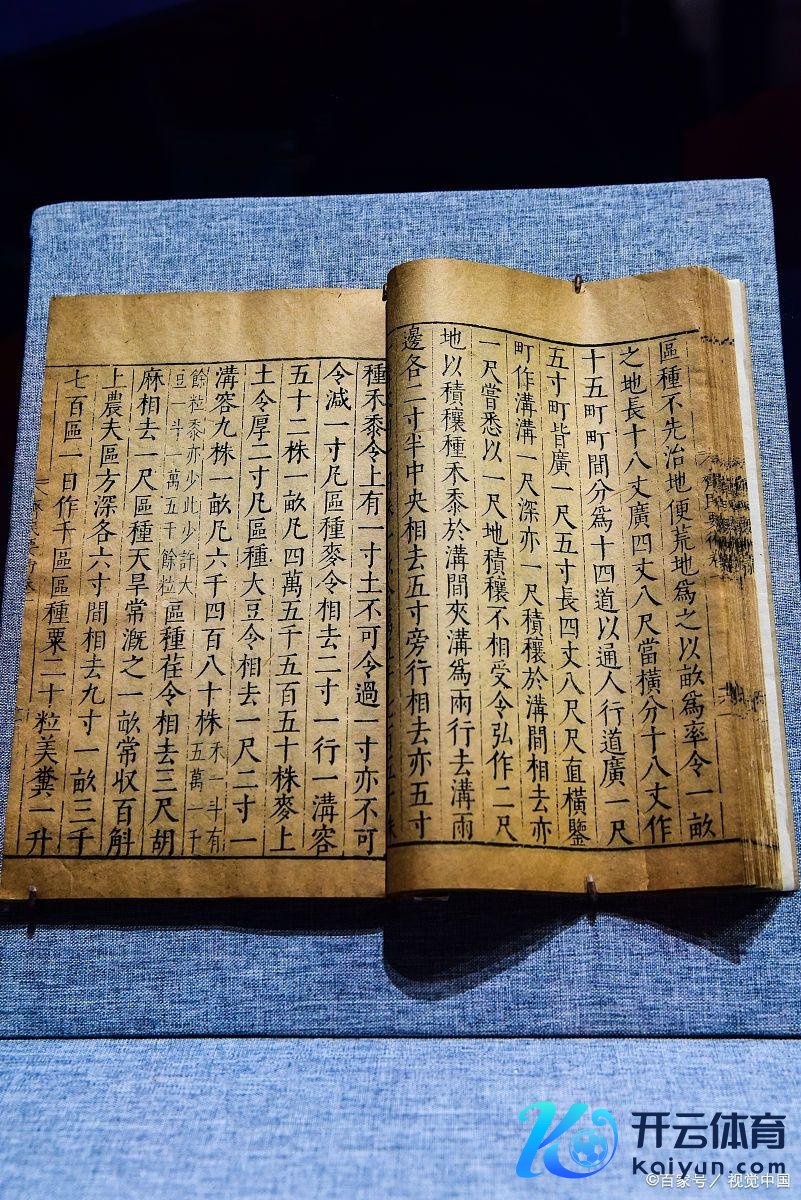 區種不先治地便荒地爲之以畝爲率令一畝
之地長十八丈廣四丈八尺當橫分十八丈作
十五町町間分爲十四道以通人行道廣一尺
五寸町皆廣一尺五寸長四丈八尺尺直橫鑿
町作溝溝一尺深亦一尺積穰於溝間相去亦
一尺嘗悉以一尺地積穰不相受令弘作二尺
地以積穰種禾黍於溝間夾溝爲兩行去溝兩
邊各二寸半中央相去五寸旁行相去亦五寸
種禾黍令上有一寸土不可令過一寸亦不可
令減一寸凡區種麥令相去二寸一行一溝容
五十二株一畝凡四萬五千五百五十株麥上
土令厚二寸凡區種大豆令相去一尺二寸一
溝容九株一畝凡六千四百八十株禾一斗有五萬一千
餘粒黍亦少此少許大豆一斗一萬五千餘粒區種荏令相去三尺胡
麻相去一尺區種天旱常漑之一畝常収百斛
上農夫區方深各六寸間相去九寸一畝三千
七百區一日作千區區種粟二十粒美糞一升
开云体育
kaiyun.com
©百家号／视觉中国